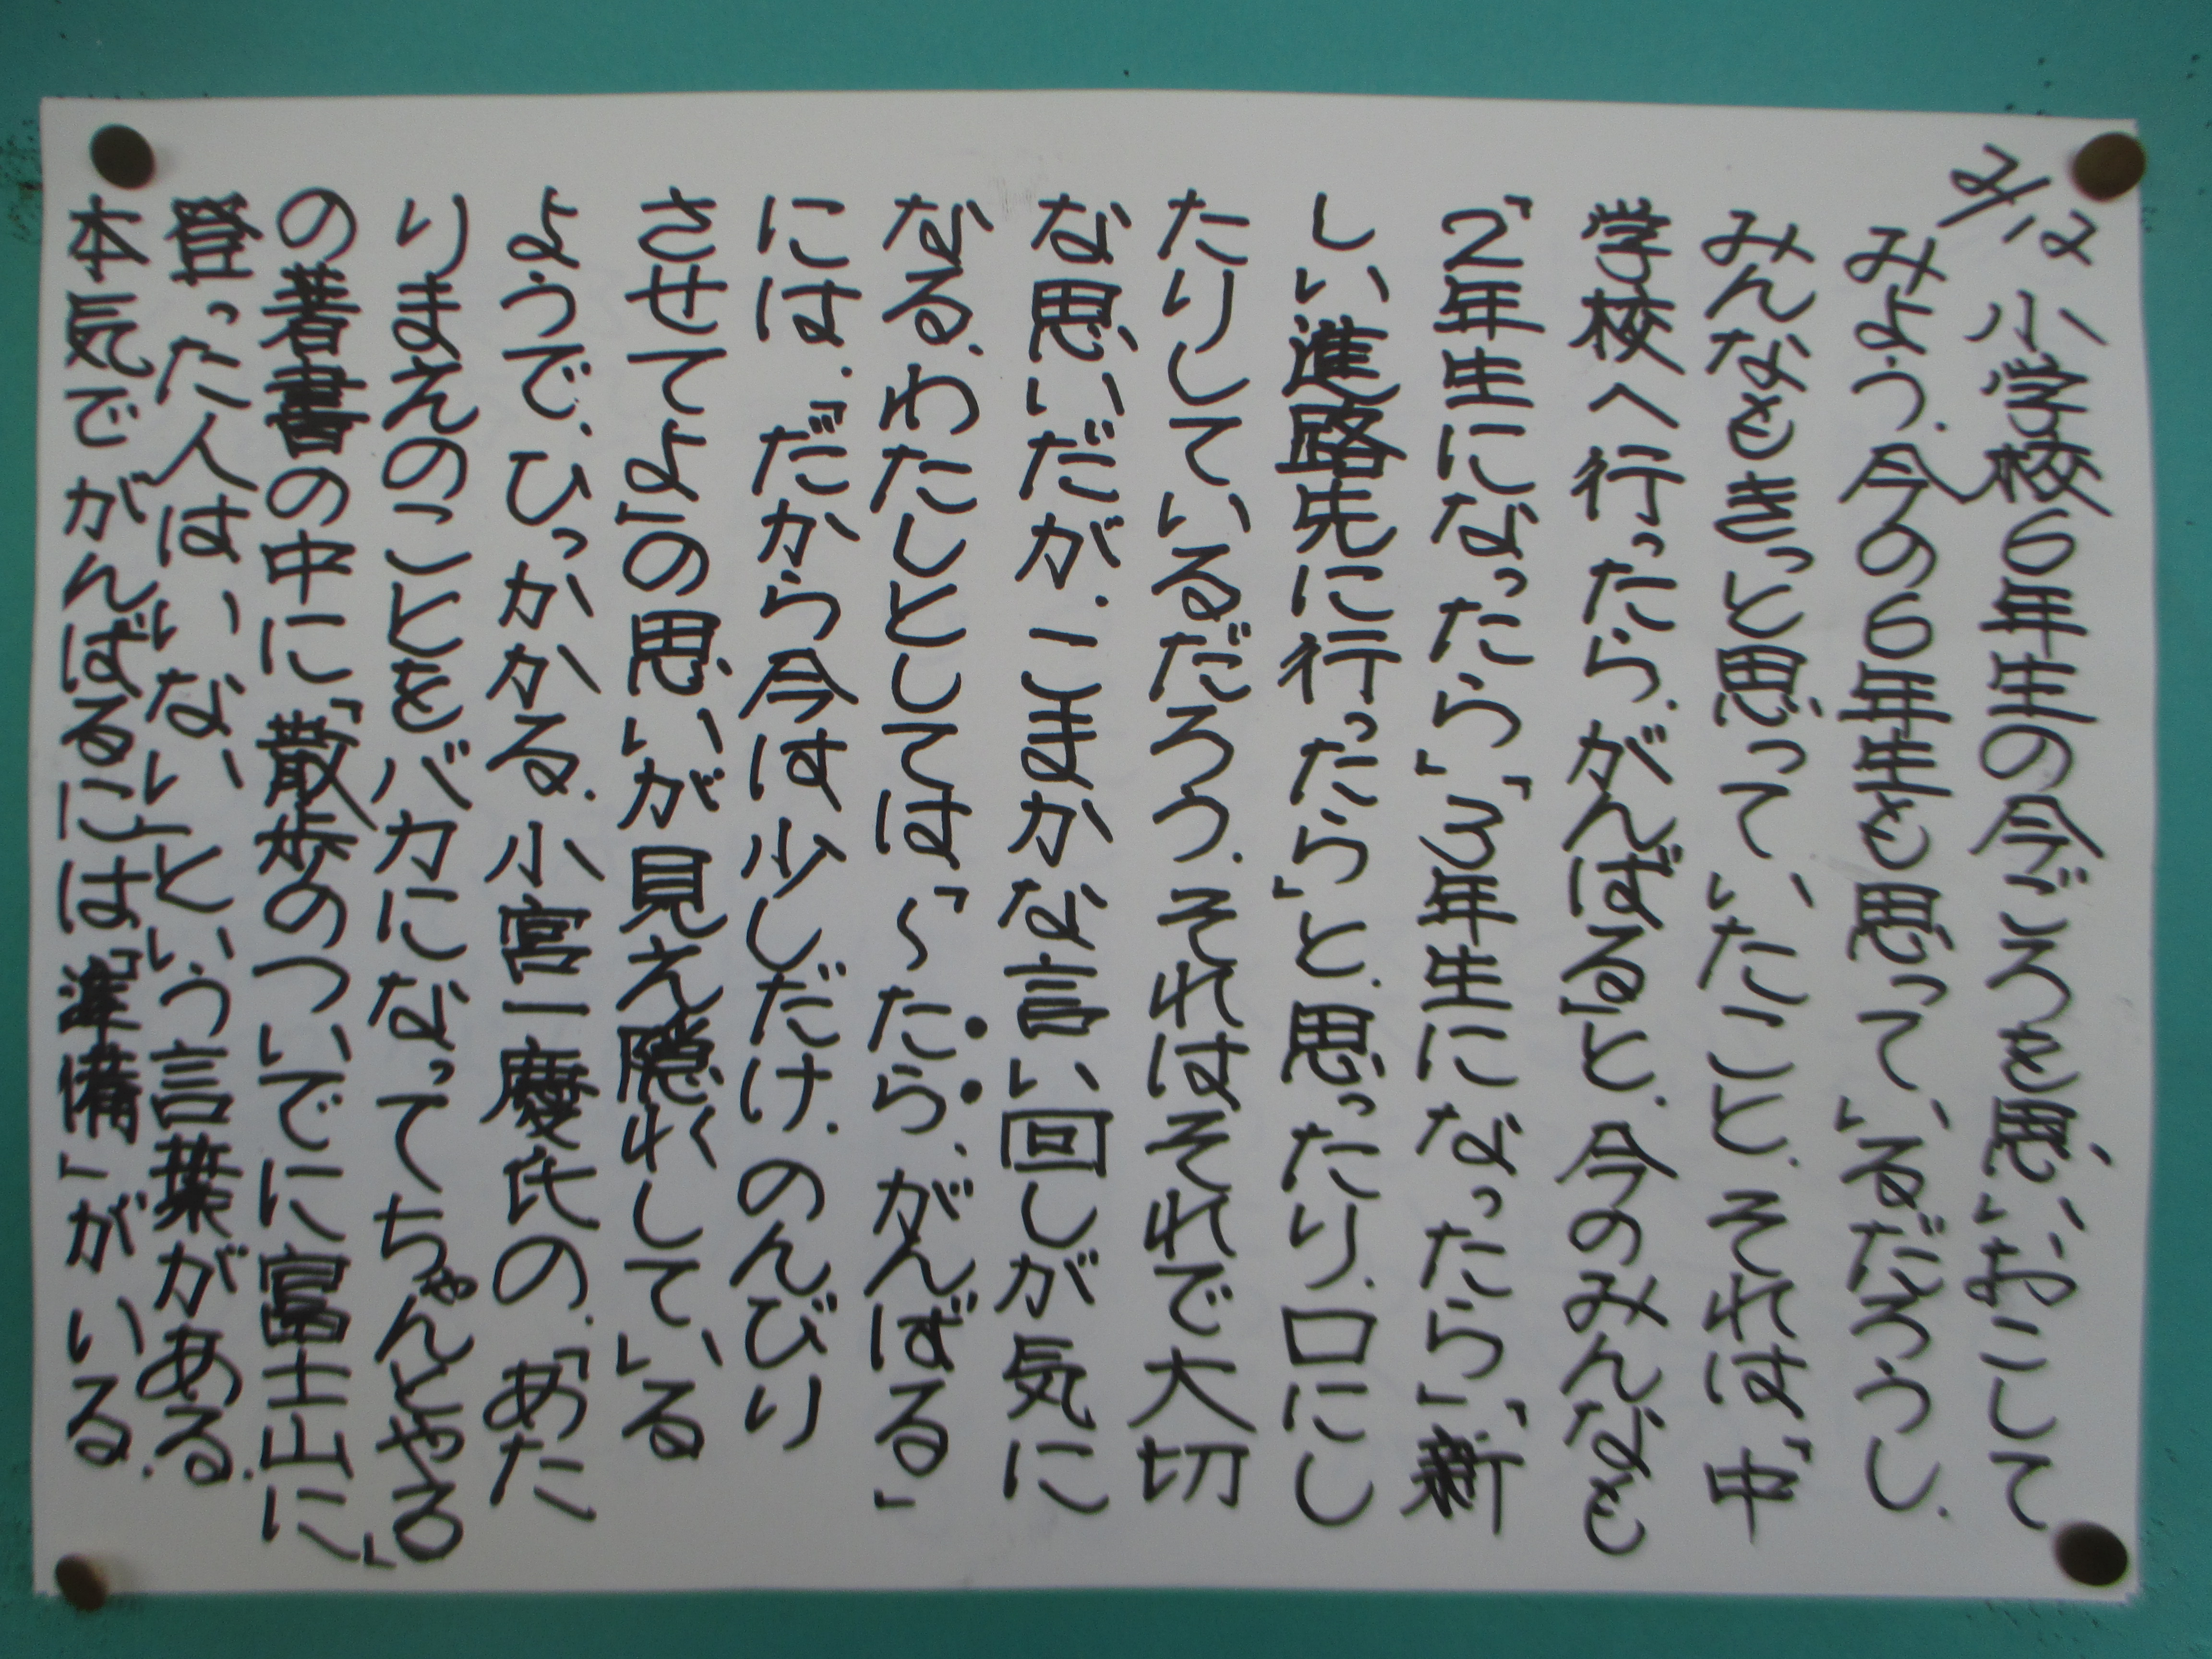 2/12 小学校6年生の今ごろを思いおこして
みよう。今の6年生も思っているだろうし、
みんなもきっと思っていたこと。それは「中
学校へ行ったら、がんばる」と。今のみんなも
「2年生になったら」「3年生になったら」「新
しい進路先に行ったら」と、思ったり、口にし
たりしているだろう。それはそれで大切
な思いだが、こまかな言い回しが気に
なる。わたしとしては、「~たら、がんばる」
には、『だから今は少しだけ、のんびり
させてよ』の思いが見え隠れしている
ようで、ひっかかる。小宮一慶氏の、「あた
りまえのことをバカになってちゃんとやる」
の著書の中に、「散歩のついでに富士山に
登った人は、いない」という言葉がある。
本気でがんばるには「準備」がいる。